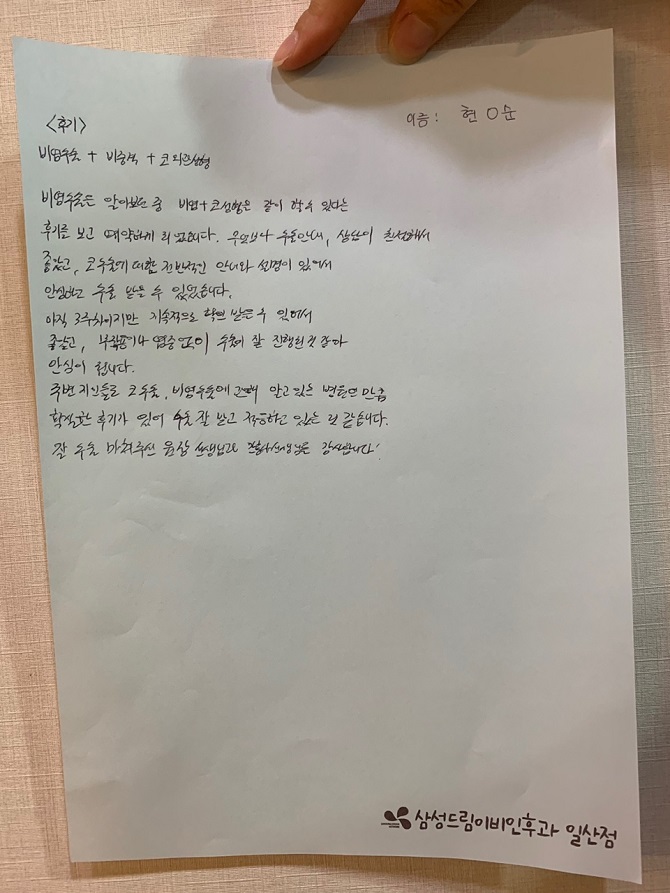 <후기>
이름 : 현 O 순
비염수술 + 비중격 + 코 외관성형
비염수술은 알아보던 중 비염+코성형은 같이 할 수 있다는
후기를 보고 예약하게 되었습니다. 무엇보다 수술안내, 상담이 친절해서
좋았고, 코수술에 대한 전반적인 안내와 설명이 있어서
안심하고 수술 받을 수 있었습니다.
아직 3주차이지만 지속적으로 확인 받을 수 있어서
좋았고, 부작용이나 염증 없이 수술이 잘 진행된 것 같아
안심이 됩니다.
주변 지인들로 코수술, 비염수술에 관해 알고 있는 만큼
확실한 후기가 있어 수술 잘 받고 적응하고 있는 것 같습니다.
잘 수술 마쳐주신 선생님과 감사합니다!
삼성드림이비인후과 일산점